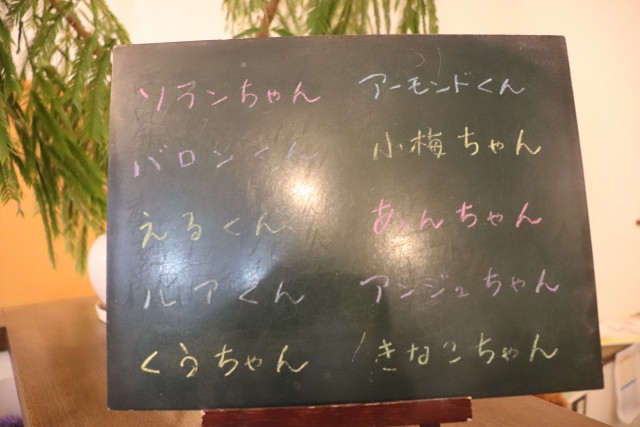 ソランちゃん
バロンくん
えるくん
ルアくん
くうちゃん
アーモンドくん
小梅ちゃん
あんちゃん
アンジュちゃん
きなこちゃん